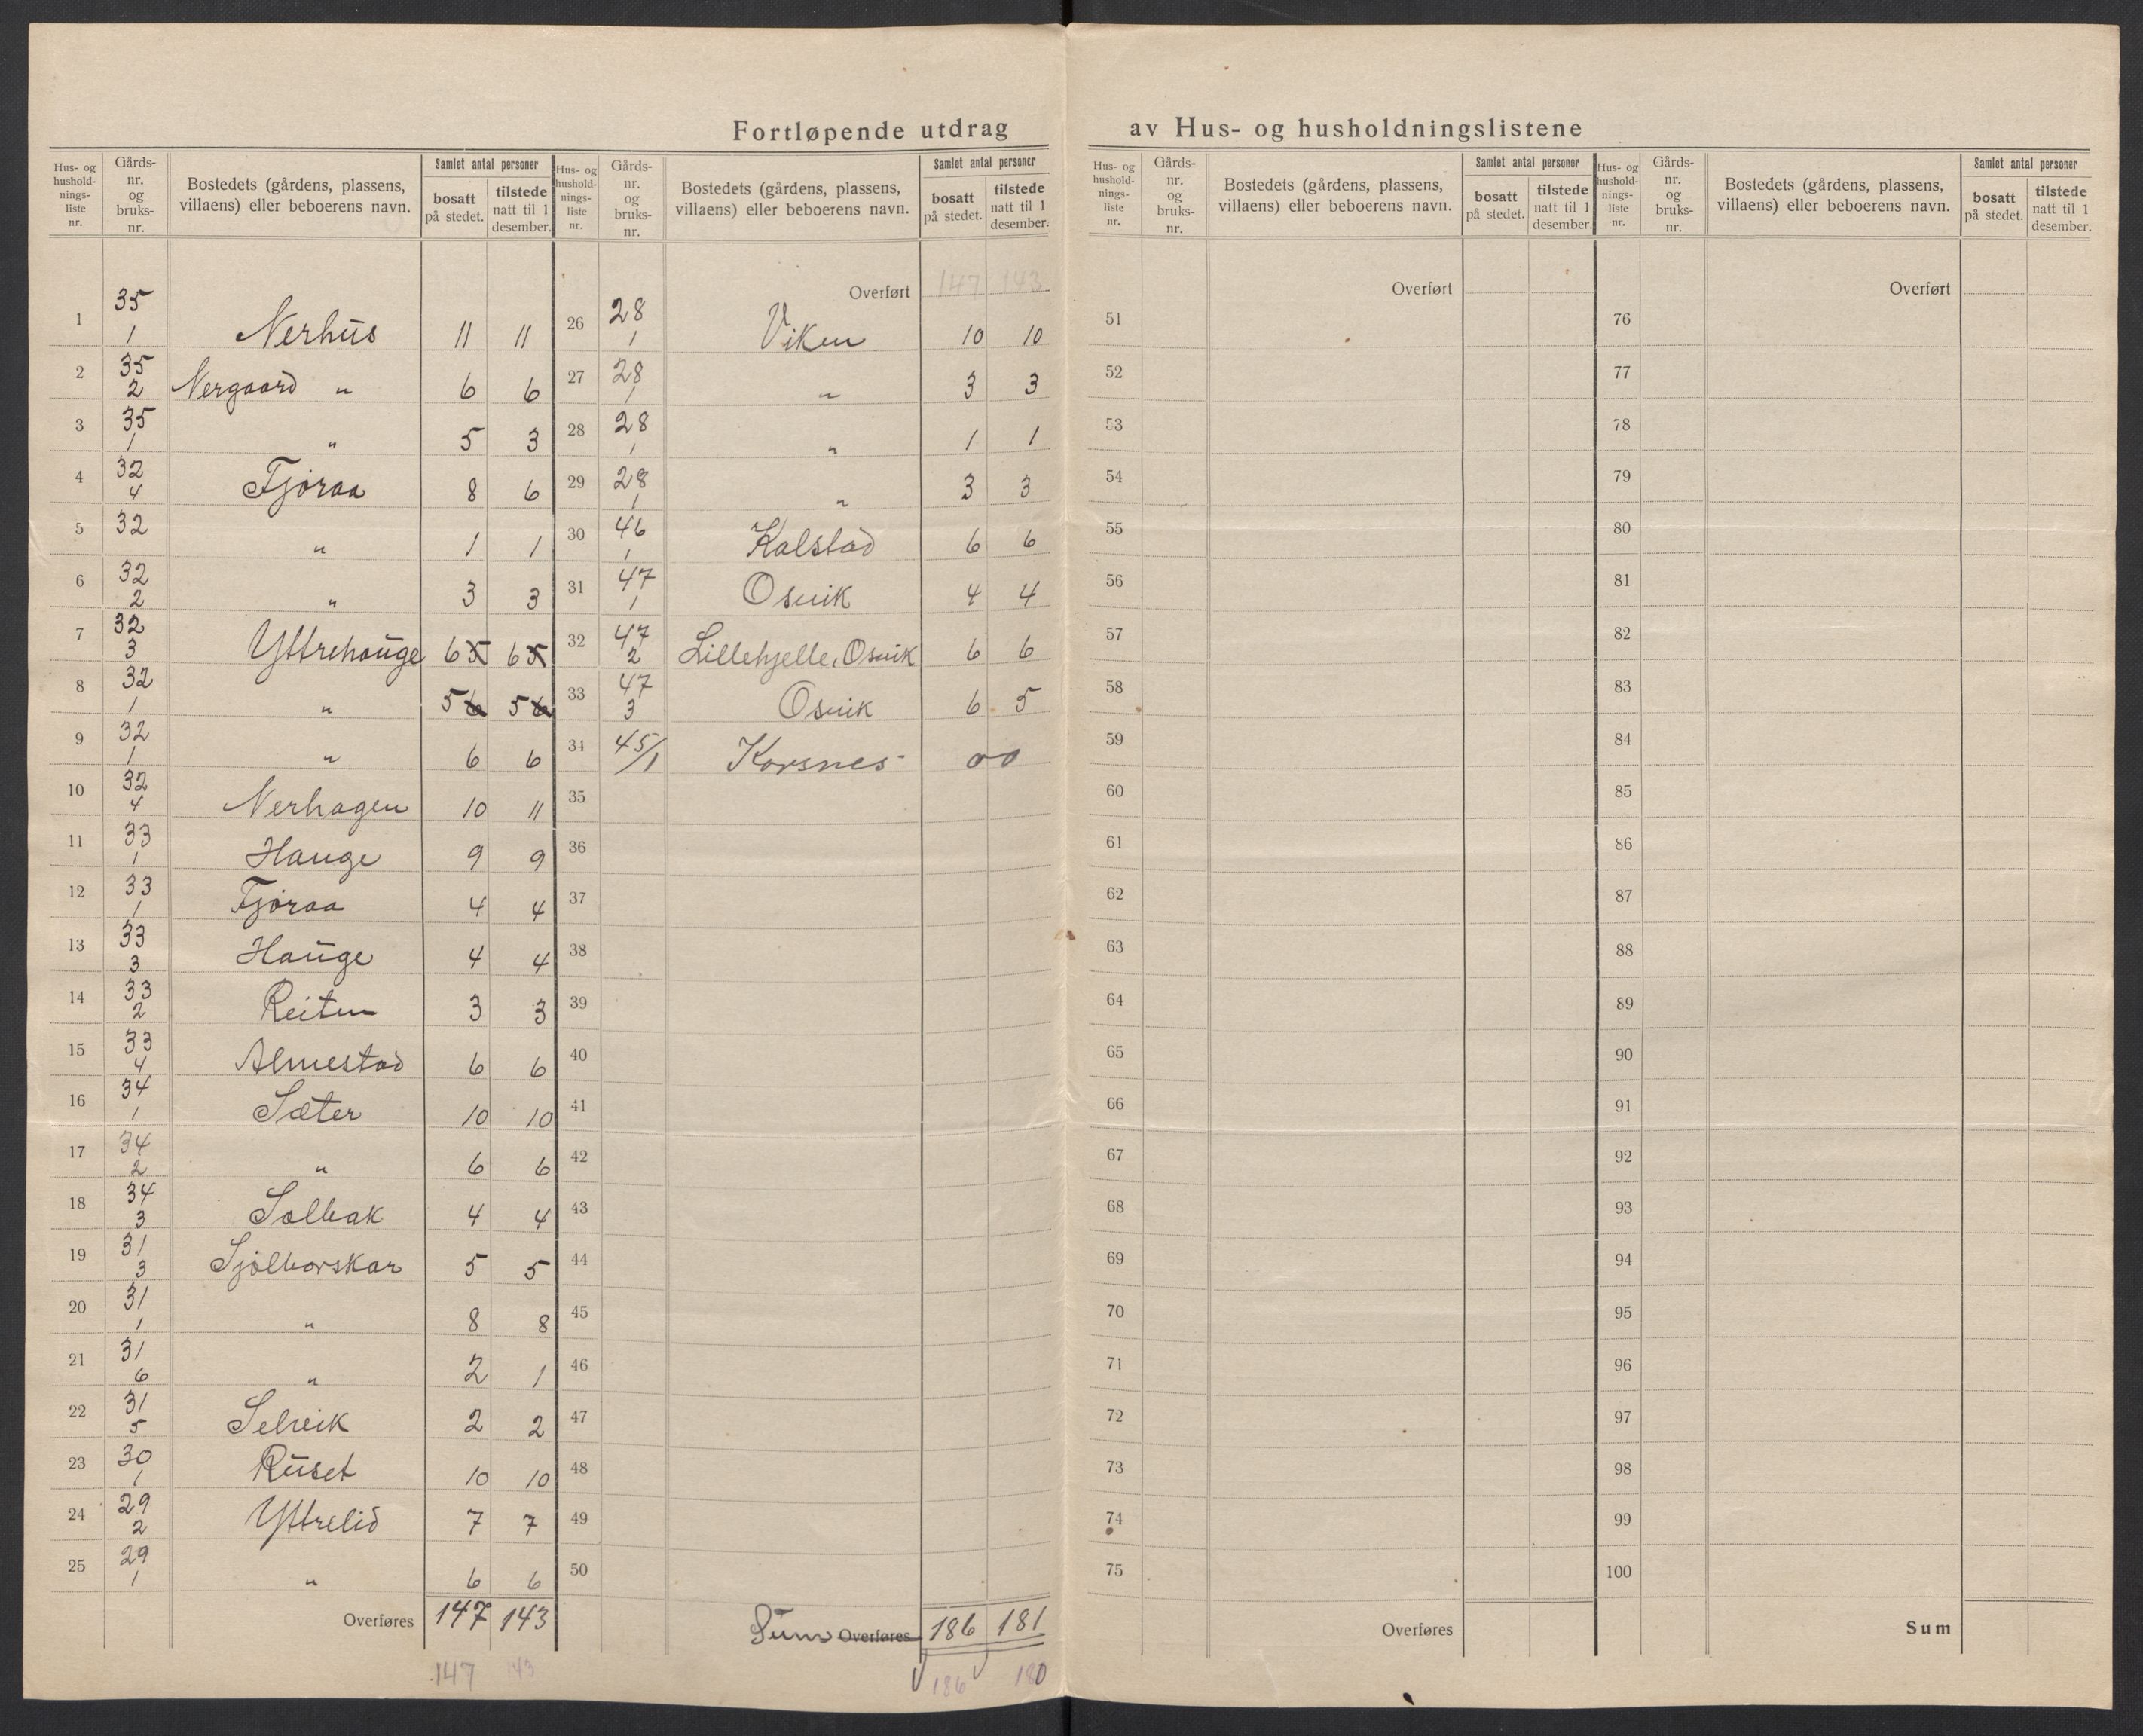 Fortløpende utdrag av Hus- og husholdningslistene
Hus- og husholdnings-liste nr. | Gårds-nr. og bruks-nr. | Bostedets (gårdens, plassens, villaens) eller beboerens navn. | Samlet antal personer bosatt på stedet. | tilstede natt til 1 desember.
1 35/1 Nerhus 11 11
2 35/2 Nergaard " 6 6
3 35/1 " 5 3
4 32/4 Fjøraa 8 6
5 32 " 1 1
6 32/2 " 3 3
7 32/3 Yttrehauge 6 5 6 5
8 32/1 " 5 6 5 6
9 32/1 " 6 6
10 32/4 Nerhagen 10 11
11 33/1 Hauge 9 9
12 33/1 Fjøraa 4 4
13 33/3 Hauge 4 4
14 33/2 Reiten 3 3
15 33/4 Almestad 6 6
16 34/1 Sæter 10 10
17 34/2 " 6 6
18 34/3 Solbak 4 4
19 31/3 Sjølborskar 5 5
20 31/1 " 8 8
21 31/6 " 2 1
22 31/5 Selvik 2 2
23 30/1 Ruset 10 10
24 29/2 Yttrelid 7 7
25 29/1 " 6 6
Overføres 147 143
147 143
Hus- og husholdnings-liste nr. | Gårds-nr. og bruks-nr. | Bostedets (gårdens, plassens, villaens) eller beboerens navn. | Samlet antal personer bosatt på stedet. | tilstede natt til 1 desember.
Overført 147 143
26 28/1 Viken 10 10
27 28/1 " 3 3
28 28/1 " 1 1
29 28/1 " 3 3
30 46/1 Kalstad 6 6
31 47/1 Osvik 4 4
32 47/2 Lillehjelle, Osvik 6 6
33 47/3 Osvik 6 5
34 45/1 Korsnes 0 0
35
36
37
38
39
40
41
42
43
44
45
46
47
48
49
50
Sum Overføres 186 181
186 180
Hus- og husholdnings-liste nr. | Gårds-nr. og bruks-nr. | Bostedets (gårdens, plassens, villaens) eller beboerens navn. | Samlet antal personer bosatt på stedet. | tilstede natt til 1 desember.
Overført
51
52
53
54
55
56
57
58
59
60
61
62
63
64
65
66
67
68
69
70
71
72
73
74
75
Overføres
Hus- og husholdnings-liste nr. | Gårds-nr. og bruks-nr. | Bostedets (gårdens, plassens, villaens) eller beboerens navn. | Samlet antal personer bosatt på stedet. | tilstede natt til 1 desember.
Overført
76
77
78
79
80
81
82
83
84
85
86
87
88
89
90
91
92
93
94
95
96
97
98
99
100
Sum